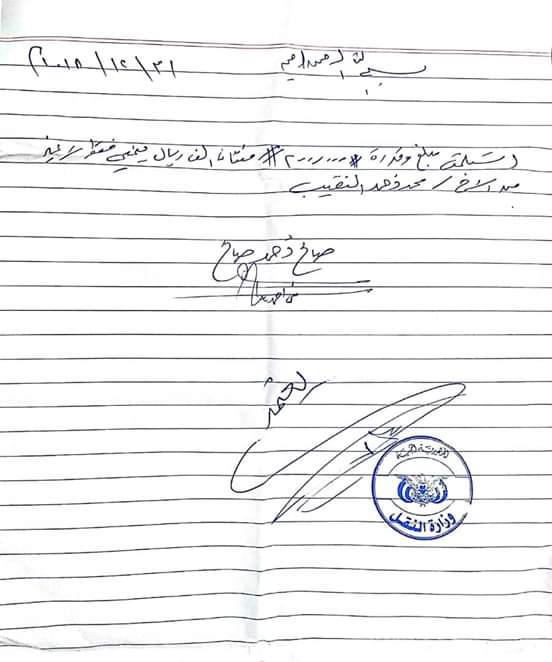 بسم الله الرحمن الرحيم
٢٠١٨/١٢/٣١
استلمت مبلغ وقدرة #٢٠٠٬٠٠٠# مئتان الف ريال يمني فقط لاغير
من الاخ / محمد احمد النقيب
صالح احمد صالح
الجمهورية اليمنية
وزارة النقل